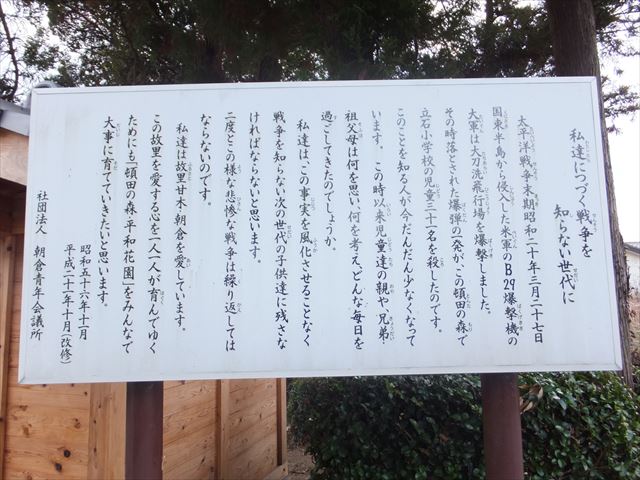 私達につづく戦争を
知らない世代に
太平洋戦争末期昭和二十年三月二十七日
国東半島から侵入した米軍のB29爆撃機の
大軍は大刀洗飛行場を爆撃しました。
その時落とされた爆弾の一発が、この頓田の森で
立石小学校の児童三十一名を殺したのです。
このことを知る人が今だんだん少なくなって
います。この時以来児童達の親や兄弟
祖父母は何を思い、何を考え、どんな毎日を
過ごしてきたのでしょうか。
私達は、この事実を風化させることなく
戦争を知らない次の世代の子供達に残さな
ければならないと思います。
二度とこの様な悲惨な戦争は繰り返しては
ならないのです。
私達は故里甘木・朝倉を愛しています。
この故里を愛する心を一人一人が育んでゆく
ためにも「頓田の森・平和花園」をみんなで
大事に育てていきたいと思います。
昭和五十六年十一月
平成二十一年十月(改修)
社団法人 朝倉青年会議所